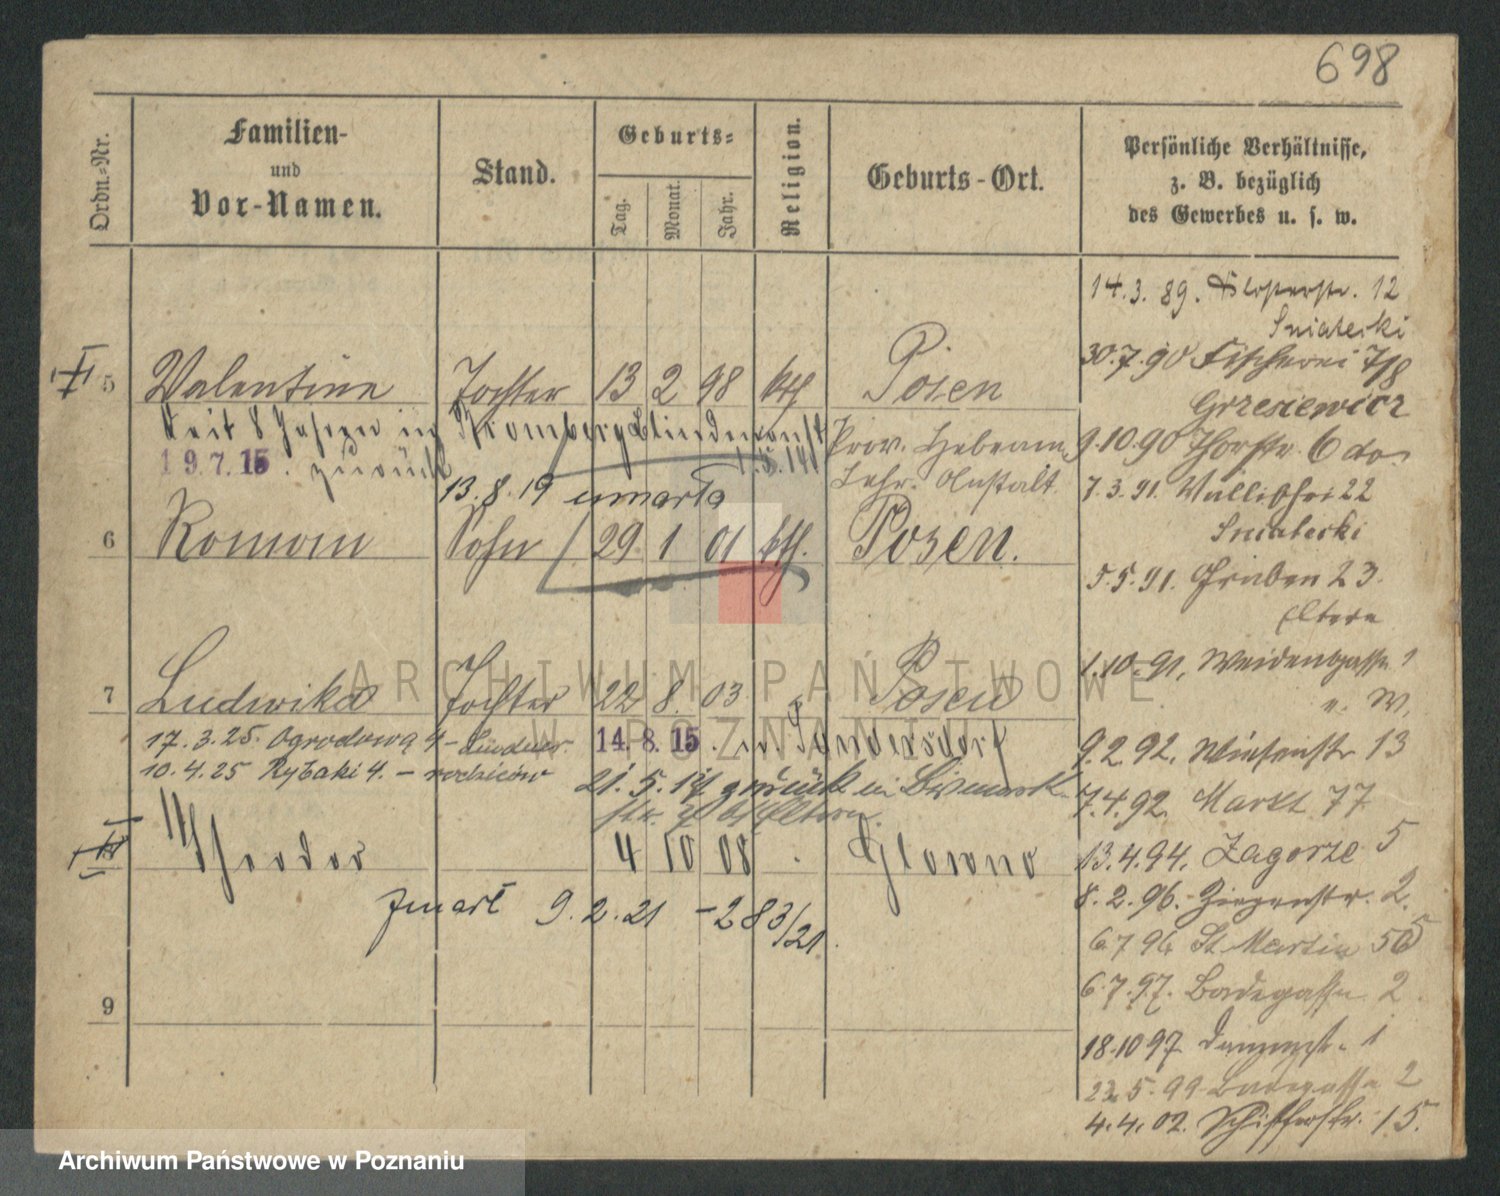 698
Ordn.-Nr.
Familien-
und
Vor-Namen.
Stand.
Geburts-
Tag.
Monat.
Jahr.
Religion.
Geburts-Ort.
Persönliche Verhältnisse,
z. B. bezüglich
des Gewerbes u. s. w.
5 Valentine Tochter 13 2 98 kth Posen
Seit 8 Jahren in Bromberg Blindenanst
19.7.15. zurück
Prov. Hebeam.
Lehr. Anstalt
13.8.19 umarła
6 Roman Sohn 29 1 01 kth. Posen.
7 Ludwika Tochter 22 8. 03 Posen
17.3.25. Ogrodowa 4 - Lindner 14.8.15. in
10.4.25 Rybaki 4. - rodziców 21.5.17 zurück in Bismarck
str. Eltern.
Theodor 4 10 08 Glowno
zmarł 9.2.21 - 283/21.
9
14.3.89. Klosterstr. 12
Sniatecki
30.7.90 Fischerei 7/8
Grzesiewicz
9.10.90 Thorstr. 6 do.
7.3.91. Wallischei 22
Sniatecki
5.5.91. Graben 23.
Eltern
1.10.91. Weidengasse 1
u. W.
9.2.92. Wiesenstr 13
7.4.92. Markt 77
13.4.94. Zagorze 5
8.2.96. Ziegenstr. 2.
6.7.96 St. Martin 56
6.7.97. Badegasse 2
18.10 97 1
23.5.99 Badegasse 2
4.4.02. Schifferstr. 15.
ARCHIWUM PAŃSTWOWE
W POZNANIU
Archiwum Państwowe w Poznaniu